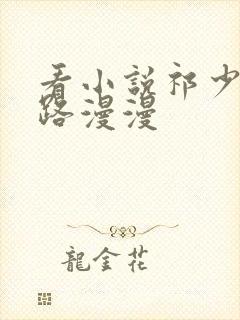 看小説祁少
路漫漫
龍金花